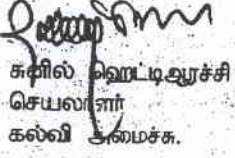 சுனில் ஹெட்டிஆரச்சி
செயலாளர்
கல்வி அமைச்சு.